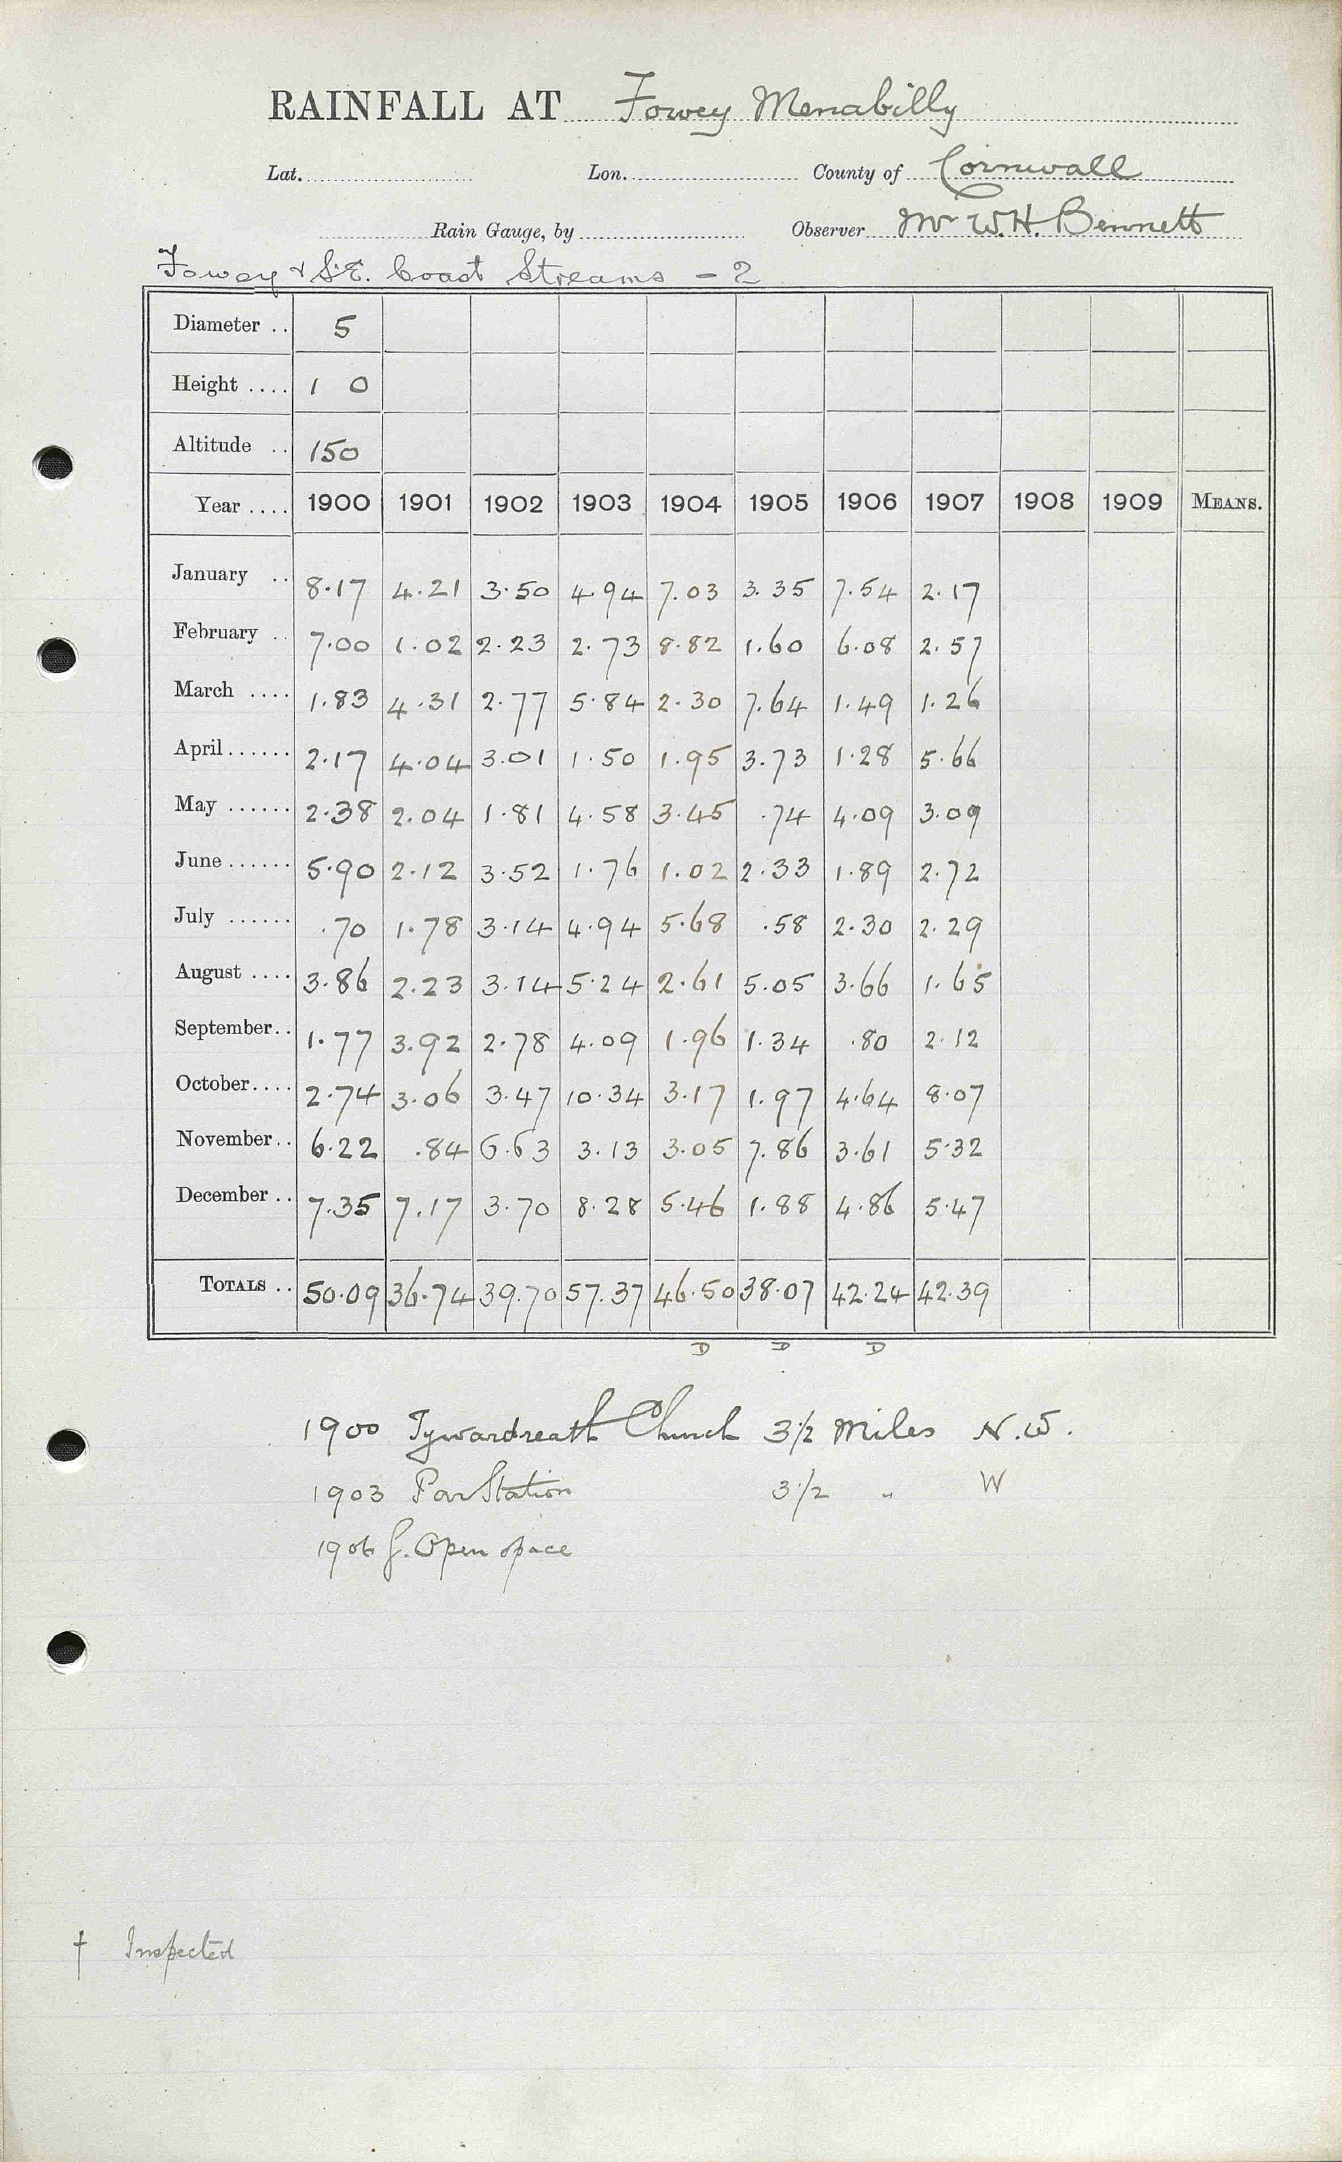 RAINFALL AT Fowey Menabilly
Lat. Lon. County of Cornwall
Rain Gauge, by Observer Mr W.H. Bennett
Fowey & S.E. Coast Streams - 2
Diameter .. 5
Height .... 1 0
Altitude .. 150
Year .... 1900 1901 1902 1903 1904 1905 1906 1907 1908 1909 MEANS.
January .. 8.17 4.21 3.50 4.94 7.03 3.35 7.54 2.17
February .. 7.00 1.02 2.23 2.73 8.82 1.60 6.08 2.57
March .... 1.83 4.31 2.77 5.84 2.30 7.64 1.49 1.26
April...... 2.17 4.04 3.01 1.50 1.95 3.73 1.28 5.66
May ...... 2.38 2.04 1.81 4.58 3.45 .74 4.09 3.09
June ...... 5.90 2.12 3.52 1.76 1.02 2.33 1.89 2.72
July ...... .70 1.78 3.14 4.94 5.68 .58 2.30 2.29
August .... 3.86 2.23 3.14 5.24 2.61 5.05 3.66 1.65
September.. 1.77 3.92 2.78 4.09 1.96 1.34 .80 2.12
October.... 2.74 3.06 3.47 10.34 3.17 1.97 4.64 8.07
November.. 6.22 .84 6.63 3.13 3.05 7.86 3.61 5.32
December .. 7.35 7.17 3.70 8.28 5.46 1.88 4.86 5.47
TOTALS .. 50.09 36.74 39.70 57.37 46.50 38.07 42.24 42.39
D D D
1900 Tywardreath Church 3 1/2 Miles N.W.
1903 Par Station 3 1/2 " W
1906 G. Open space
† Inspected